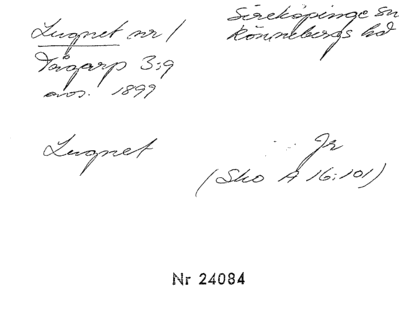 Lugnet nr 1
Sireköpinge sn
Rönnebergs hd
Tågarp 3:9
avs. 1899
Lugnet
Jr
(Sko A 16:101)
Nr 24084